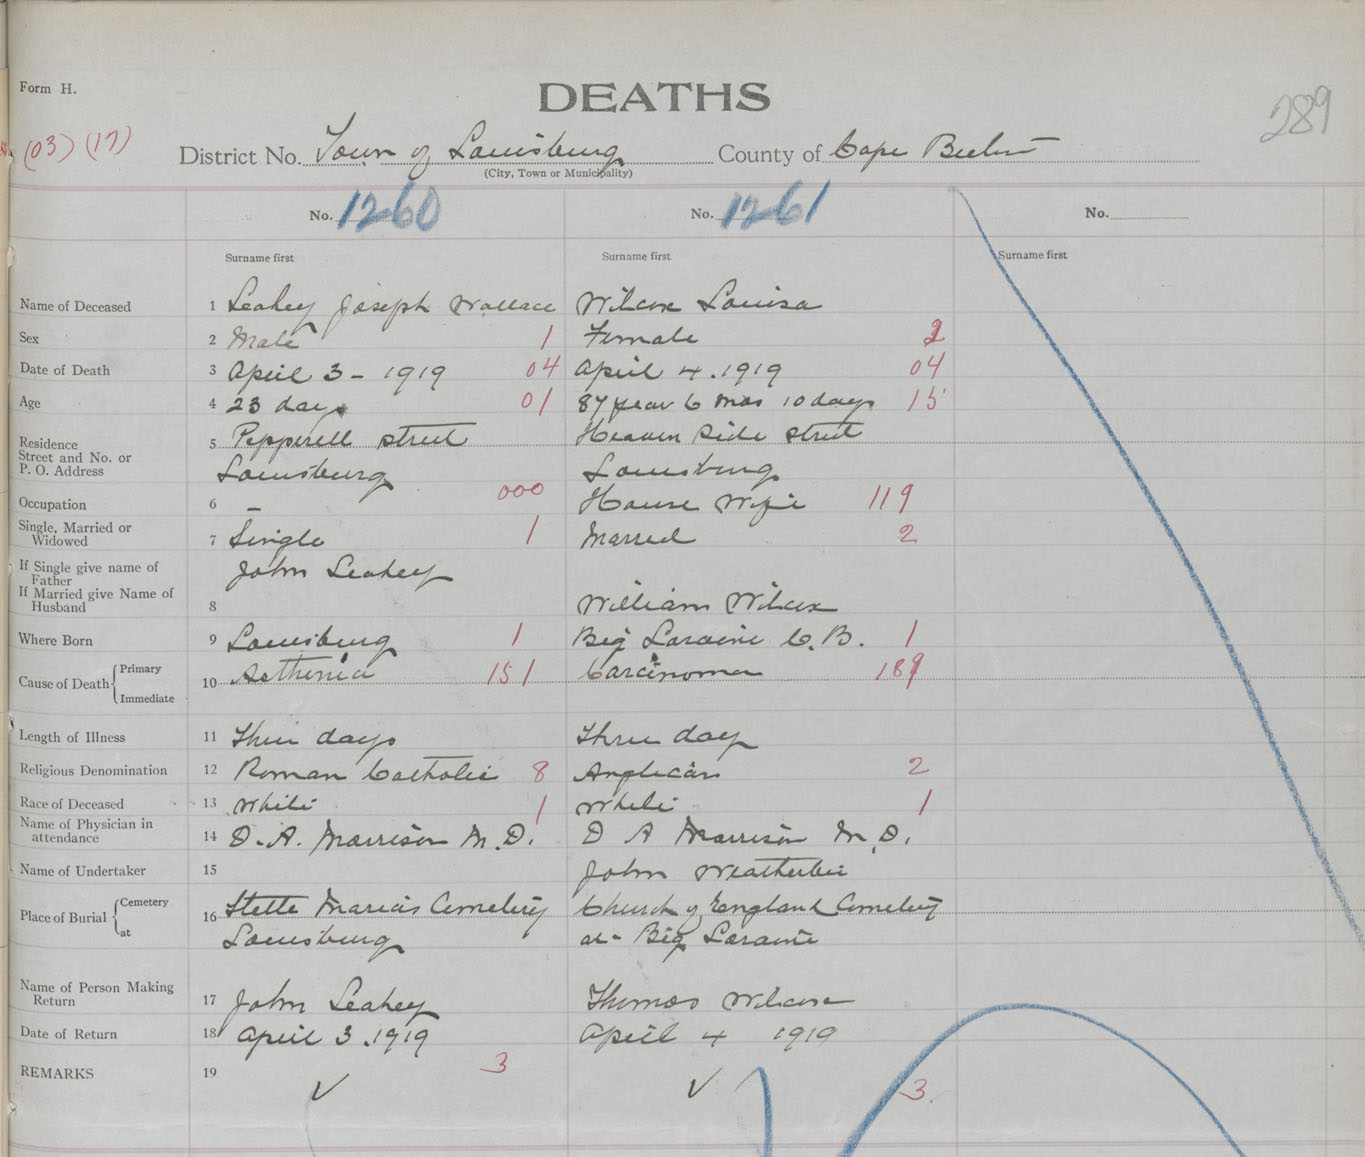 Form H.
DEATHS
289
(03) (17)
District No. Town of Louisburg County of Cape Breton
(City, Town or Municipality)
No. 1260 No. 1261 No.
Surname first Surname first Surname first
Name of Deceased 1 Leahey Joseph Wallace Wilcox Louisa
Sex 2 Male 1 Female 2
Date of Death 3 April 3 - 1919 04 April 4. 1919 04
Age 4 23 days 01 87 year 6 mos 10 days 15
Residence 5 Pepperell street Heaven Side street
Street and No. or
P. O. Address Louisburg Louisburg
Occupation 6 – 000 House Wife 119
Single, Married or
Widowed 7 Single 1 Married 2
If Single give name of
Father John Leahey
If Married give Name of
Husband 8 William Wilcox
Where Born 9 Louisburg 1 Big Loraine C. B. 1
Cause of Death { Primary
10 Asthenia 151 Carcinoma 189
Immediate
Length of Illness 11 Three days Three day
Religious Denomination 12 Roman Catholic 8 Anglican 2
Race of Deceased 13 White 1 White 1
Name of Physician in
attendance 14 D. A. Morrison M. D. D A Morrison M. D.
Name of Undertaker 15 John Weatherbie
Place of Burial { Cemetery
at
16 Stella Maris Cemetery Church of England Cemetery
Louisburg at Big Loraine
Name of Person Making
Return 17 John Leahey Thomas Wilcox
Date of Return 18 April 3. 1919 April 4 1919
REMARKS 19 3 3